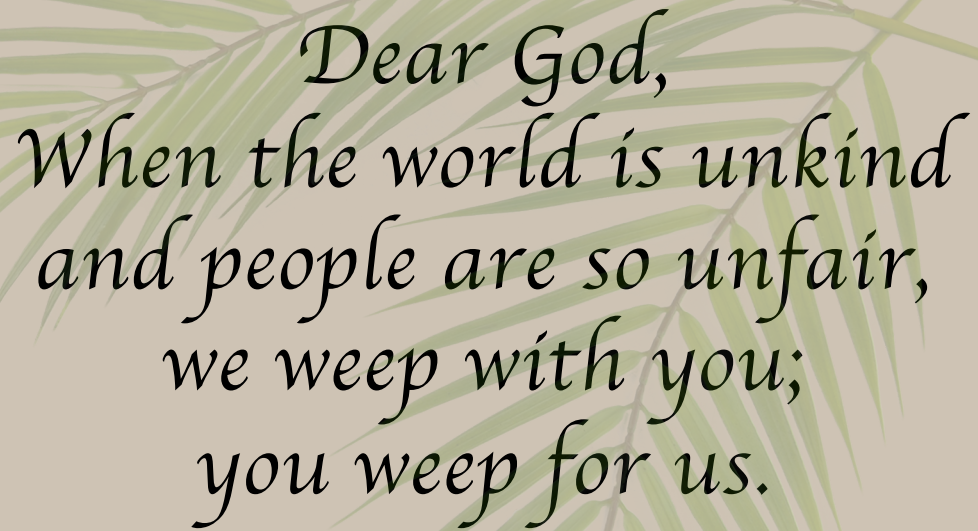 Dear God,
When the world is unkind
and people are so unfair,
we weep with you;
you weep for us.